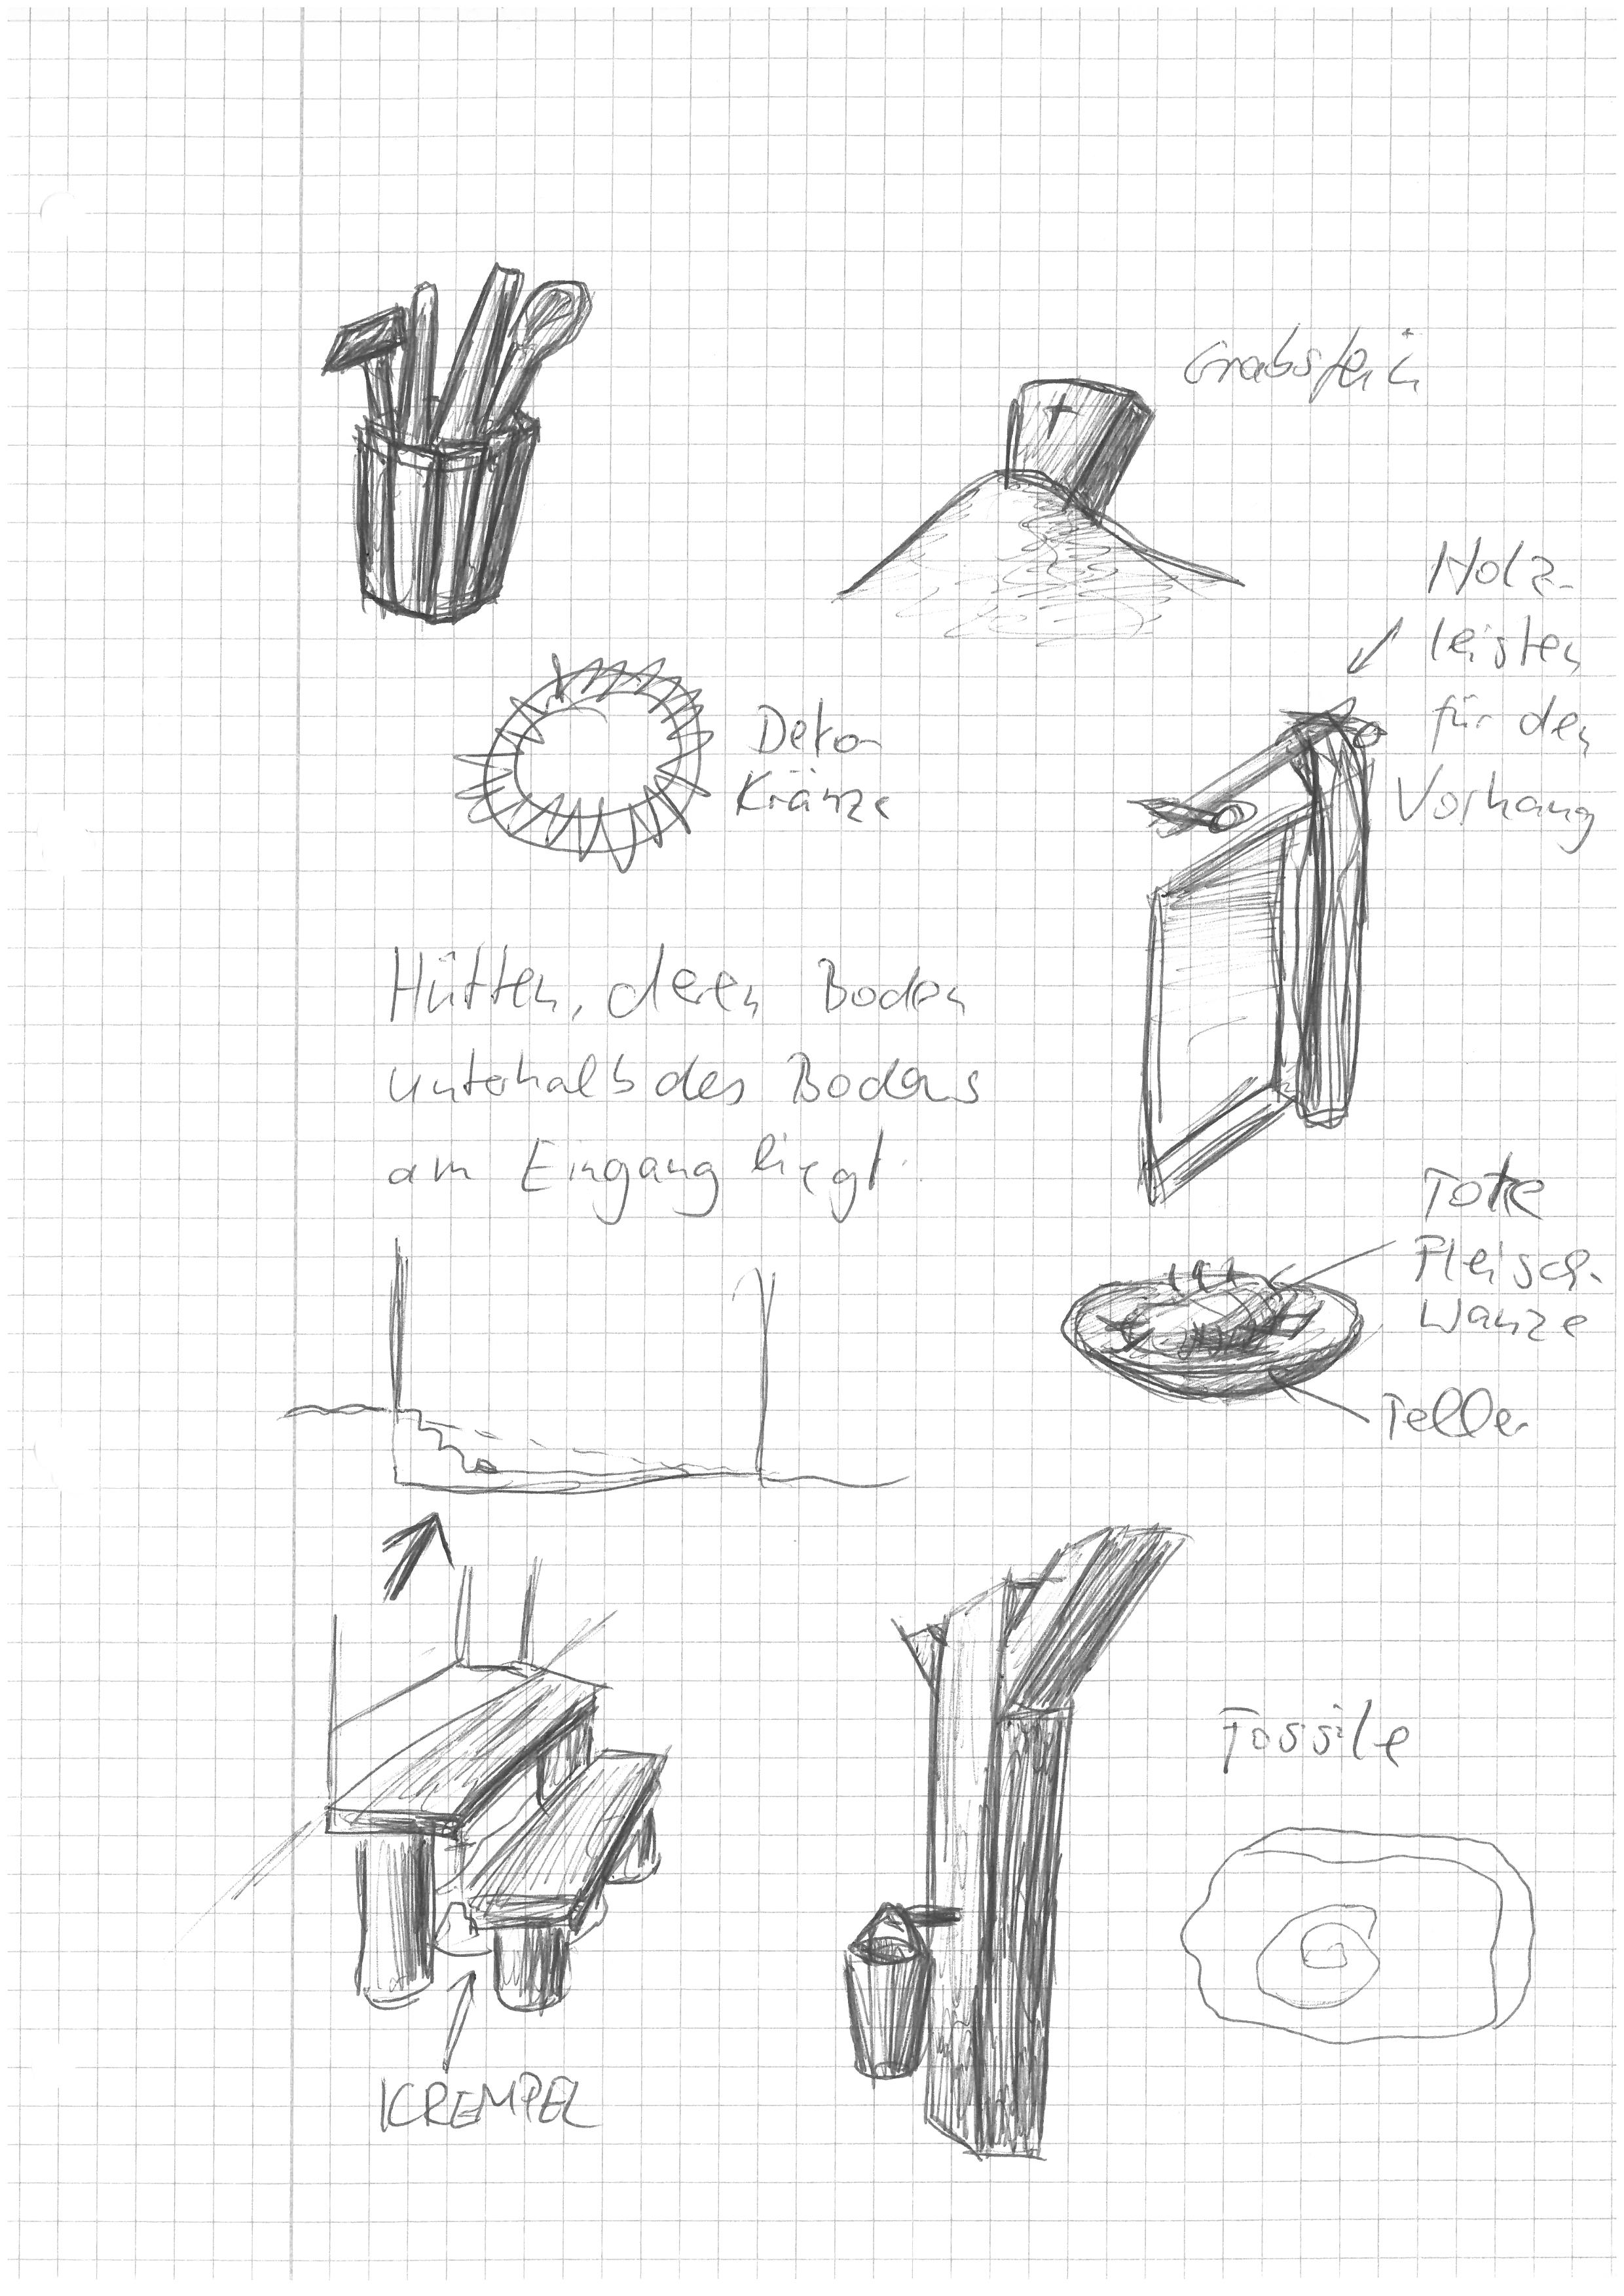 Grabstein
Holz-
leisten
für den
Vorhang
Deko-
Kränze
Hütten, deren Boden
unterhalb des Bodens
am Eingang liegt.
Tote
Fleisch-
wanze
Teller
Fossile
KREMPEL